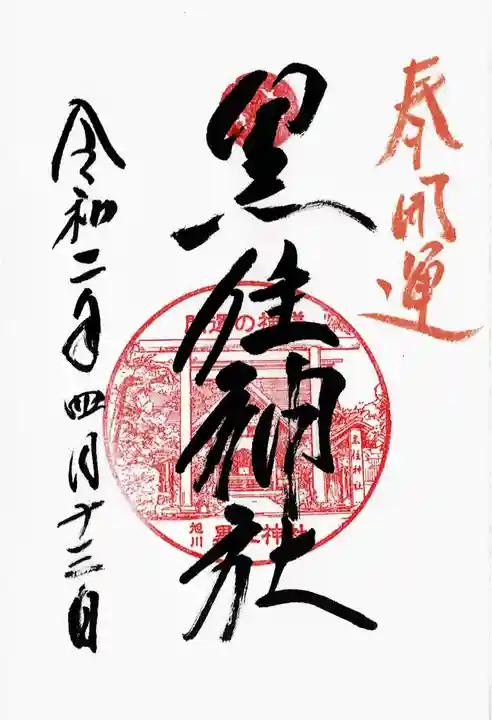 奉開運
黒住神社
開運の神道
黒住神社
旭川 黒住神社
令和二年四月十二日